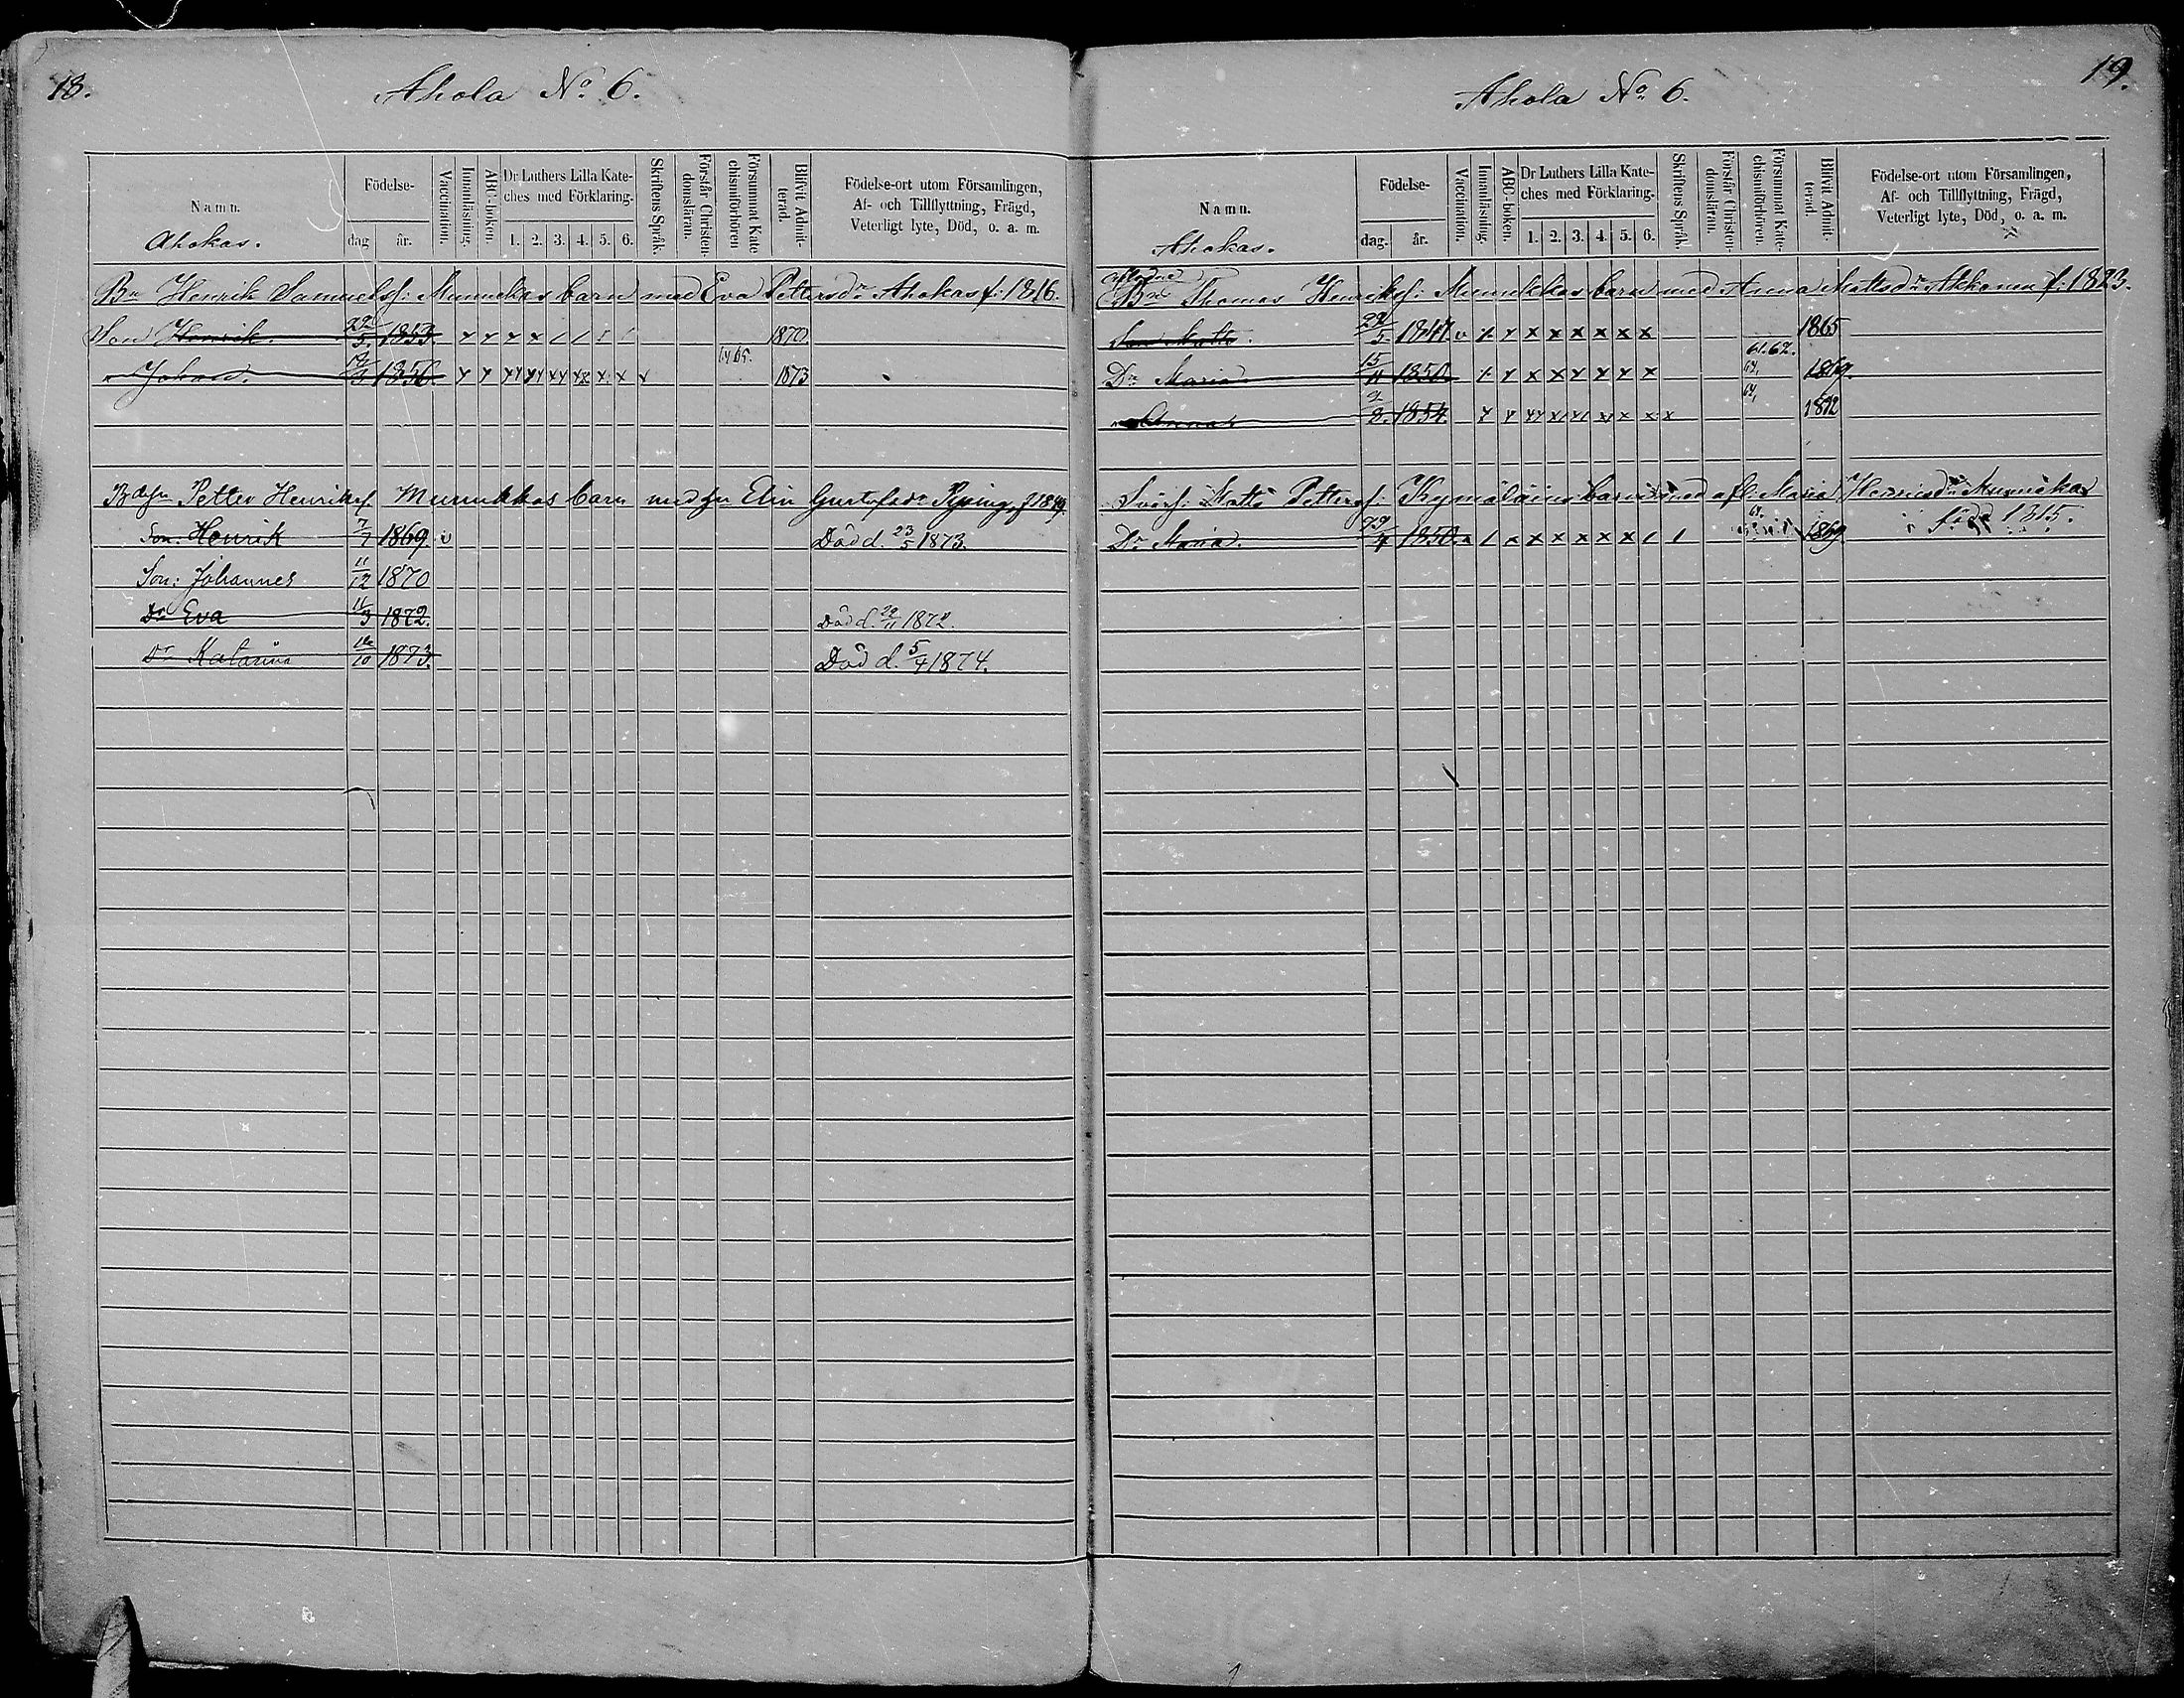 18.
Ahola No 6.
Namn.
Ahokas.
Födelse-
dag
år.
Vaccination.
Innanläsning.
ABC-boken.
Dr Luthers Lilla Kate-
ches med Förklaring.
1. 2. 3. 4. 5. 6.
Skriftens Språk.
Förstår Christen-
domsläran.
Försummat Kate
chismiförhören
Blifvit Admit-
terad.
Födelse-ort utom Församlingen,
Af- och Tillflyttning, Frägd,
Veterligt lyte, Död, o. a. m.
Bn Henrik Samuelsf: Munukkas barn med Eva Pettersdr Ahokas f: 1816.
Son Henrik. 22/5. 1853. 1870
" Johan. 1856 64 65. 1873
Petter Henriksf. Munukkas barn med Elin Gustafsdr f 1849.
Son: Henrik 7/7 1869. v Död d. 23/5 1873.
Son: Johannes 11/12 1870
Dr Eva 11/3 1872. Död d. 29/11 1872.
Dr Katarina 10 1873. Död d. 5/4 1874.
19.
Ahola No 6.
Namn.
Ahokas.
Födelse-
dag.
år.
Vaccination.
Innanläsning.
ABC-boken.
Dr Luthers Lilla Kate-
ches med Förklaring.
1. 2. 3. 4. 5. 6.
Skriftens Språk.
Förstår Christen-
domsläran.
Försummat Kate-
chismiförhören.
Blifvit Admit-
terad.
Födelse-ort utom Församlingen,
Af- och Tillflyttning, Frägd,
Veterligt lyte, Död, o. a. m.
Aflidne
Bn Thomas Henriksf: Munukkas barn med Anna Mattsdr Akkanen f: 1823.
Son Matts. 1847. v x x x x x x x x 1865
Dr Maria 15/11 1850. 61. 62. 64. 1869.
" Anna 1854. 64, 1872
Svärf: Matts Pettersf: Kymäläinens barn med afl. Maria Henricsdr Munukka
född 1815.
Dr Maria. 1850. 64. 1869